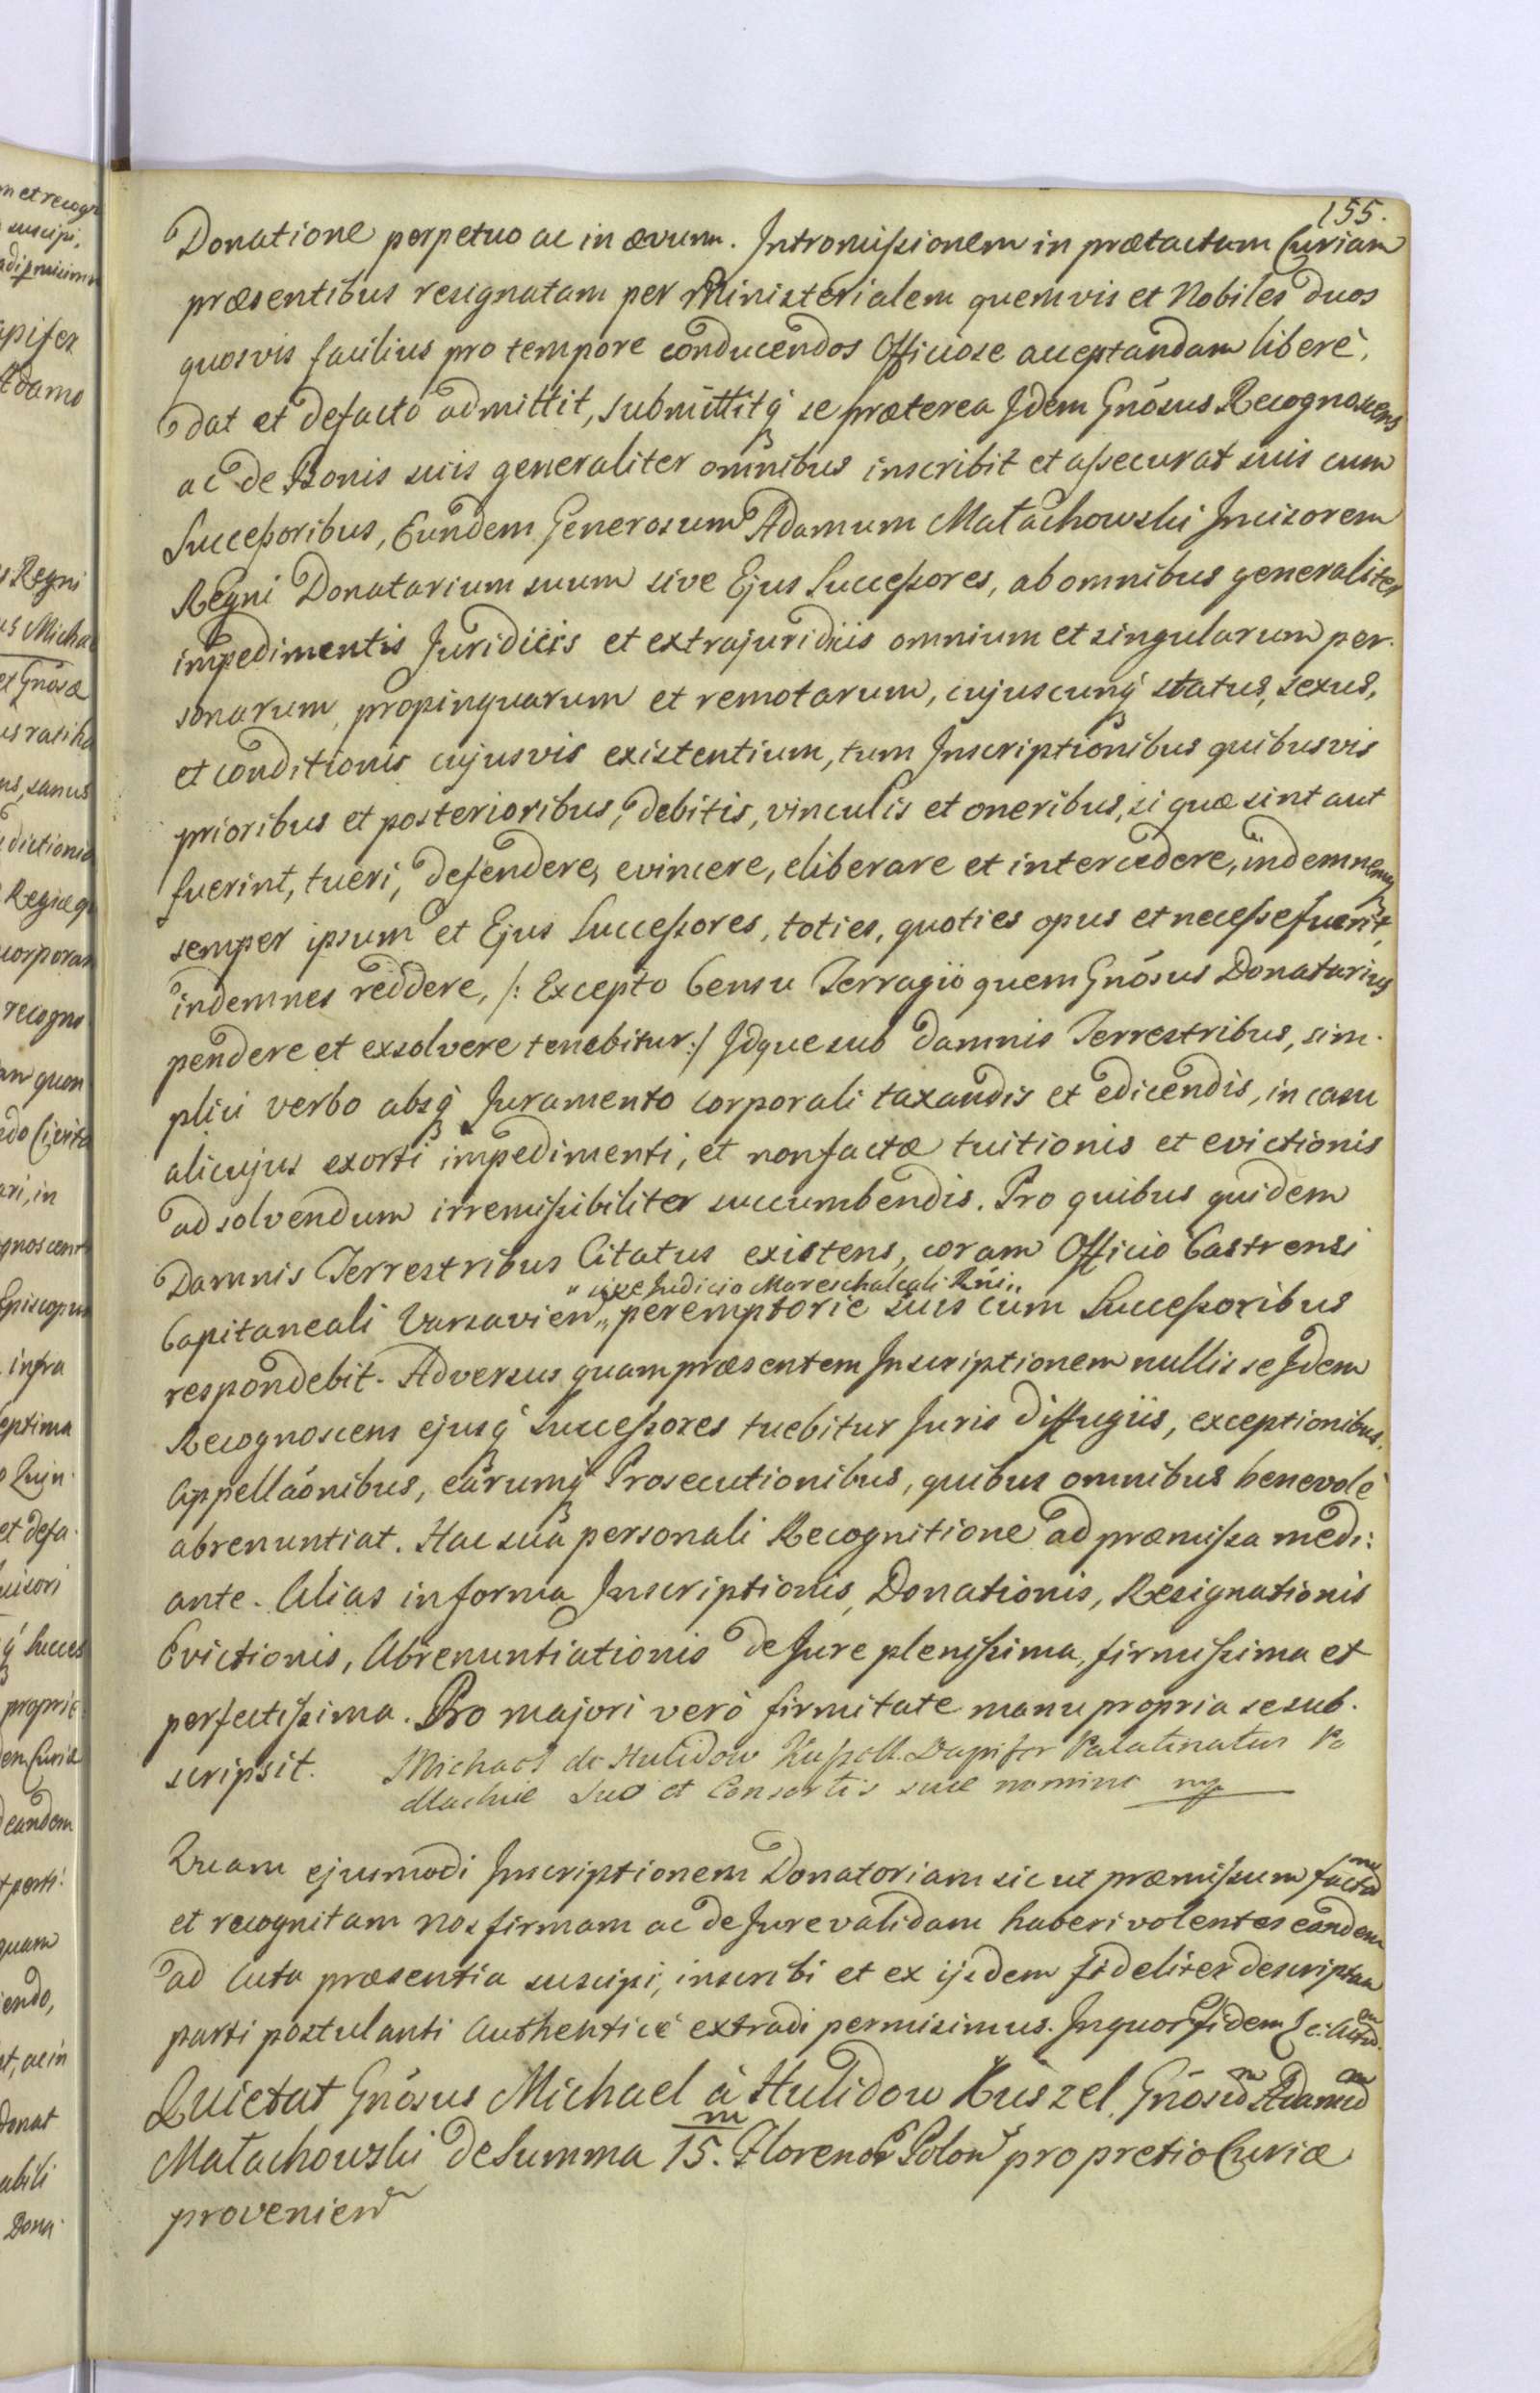 155.
Donatione perpetuo ac in ævum. Intromissionem in prætactam Curiam
præsentibus resignatam per Ministerialem quemvis et Nobiles duos
quosvis facilius pro tempore conducendos Officiose acceptandam liberè,
dat et defacto admittit, submittitq́ se præterea Idem Gnósus Recognoscens
ac de Bonis suis generaliter omnibus inscribit et assecurat suis cum
Successoribus, Eundem Generosum Adamum Małachowski Incisorem
Regni Donatarium suum sive Ejus Successores, ab omnibus generaliter
impedimentis Juridicis et extrajuridicis omnium et singularum per-
sonarum propinquarum et remotarum, cujuscunq́ status, sexus,
et conditionis cujusvis existentium, tum Inscriptionibus quibusvis
prioribus et posterioribus, debitis, vinculis et oneribus, si quæ sint aut
fuerint, tueri, defendere, evincere, eliberare et intercedere, indemnemq́
semper ipsum et Ejus Successores, toties, quoties opus et necesse fuerit,
indemnes reddere, /: Excepto Censu Terragii quem Gnósus Donatarius
pendere et exsolvere tenebitur :/ Idque sub damnis Terrestribus, sim-
plici verbo absq́ Juramento corporali taxandis et edicendis, in casu
alicujus exorti impedimenti, et non factæ tuitionis et evictionis
ad solvendum irremissibiliter succumbendis. Pro quibus quidem
Damnis Terrestribus Citatus existens, coram Officio Castrensi
„ sive Judicio Mareschalcali Rńi „
Capitaneali Varsavien „ peremptorie suis cum Successoribus
respondebit. Adversus quam præsentem Inscriptionem nullis se Idem
Recognoscens ejusq́ Successores tuebitur Juris diffugiis, exceptionibus,
Appellaónibus, earumq́ Prosecutionibus, quibus omnibus benevolè
abrenuntiat. Hac suâ personali Recognitione ad præmissa medi:
ante. Alias in forma Inscriptionis, Donationis, Resignationis
Evictionis, Abrenuntiationis de Jure plenissima, firmissima et
perfectissima. Pro majori verò firmitate manu propria se sub-
scripsit. Michael de Hulidow Kuszell Dapifer Palatinatus Po
dlachiæ Suo et Consortis suæ nomine mp
Quam ejusmodi Inscriptionem Donatoriam sic ut præmissum factam
et recognitam nos firmam ac de Jure validam haberi volentes eandem
ad Acta præsentia suscipi, inscribi et ex ijsdem fideliter descriptam
parti postulanti Authenticè extradi permisimus. In quor fidem
Quietat Gnósus Michael à Hulidow Kuszel, Gnósum Adamum
Małachowski de Summa 15.m Florenor Polon pro pretio Curiæ
provenien